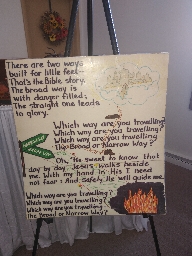 There are two ways
built for little feet—
That's the Bible story.
The broad way is
with danger filled;
The straight one leads
to glory.
Which way are you travelling?
Which way are you travelling?
Which way are you travelling?
The Broad or Narrow Way?
Oh, 'tis sweet to know that
day by day Jesus walks beside
me. With my hand in His I need
not fear; And Safely He will guide
me.
Which way are you travelling?
Which way are you travelling?
Which way are you travelling?
the Broad or Narrow Way?